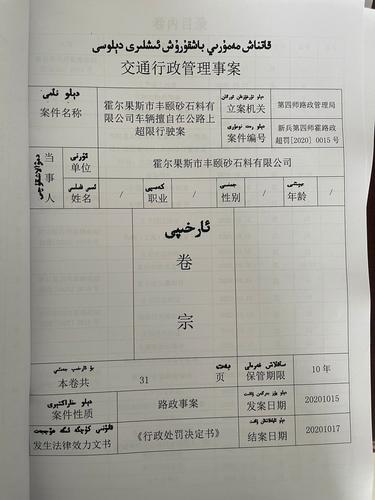 قاتناش مەمۇرىي باشقۇرۇش ئىشلىرى دېلوسى
交通行政管理事案
دېلو نامى
案件名称
霍尔果斯市丰颐砂石料有
限公司车辆擅自在公路上
超限行驶案
立案机关
第四师路政管理局
案件编号
新兵第四师霍路政
超罚[2020] 0015 号
当事人
ئورنى
单位
霍尔果斯市丰颐砂石料有限公司
姓名
/
كەسپى
职业
/
جىنسى
性别
/
يېشى
年龄
/
ئارخىپى
卷
宗
本卷共
31
بەت
页
ساقلاش مەزگىلى
保管期限
10 年
案件性质
路政事案
发案日期
20201015
发生法律效力文书
《行政处罚决定书》
结案日期
20201017